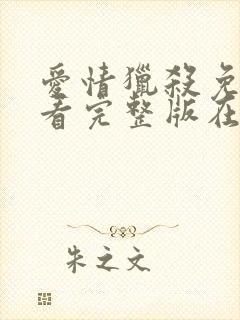 愛情獵殺免
看完整版在
朱之文